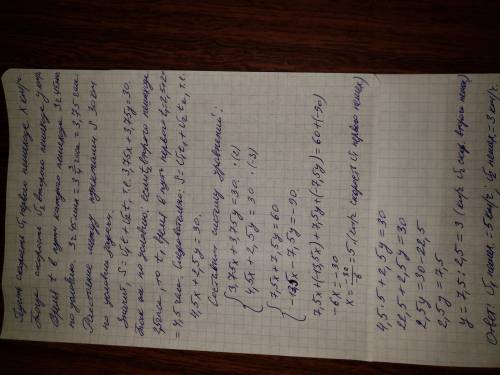 Пусть скорость V₁ первого пешехода x км/ч.
Тогда скорость V₂ второго пешехода y км/ч.
Время t в пути каждого пешехода 3ч 45мин
по условию. 3ч 45мин = 3 3/4 часа = 3,75 часа.
Расстояние между пунктами S 30 км
по условию задачи.
Значит, S = V₁t + V₂t, т.е. 3,75x + 3,75y = 30.
Так же по условию: если второго пешехода
2,5 часа, то t₁ время в пути первого t₁ = 2,5+2=
= 4,5 часа. Следовательно: S = V₁t₁ + V₂t₂, т.е.
4,5x + 2,5y = 30.
Составим систему уравнений:
{ 3,75x + 3,75y = 30 · (2)
4,5x + 2,5y = 30 · (-3)
{ 7,5x + 7,5y = 60
-13,5x - 7,5y = -90.
7,5x + (-13,5x) + 7,5y + (-7,5y) = 60 + (-90)
-6x = -30
x = -30/-6 = 5 (км/ч скорость V₁ первого пешех.)
4,5·5 + 2,5y = 30
22,5 + 2,5y = 30
2,5y = 30 - 22,5
2,5y = 7,5
y = 7,5 : 2,5 = 3 (км/ч V₂ второго пешех.)
Ответ: V₁ пешех - 5 км/ч; V₂ пешех = 3 км/ч.